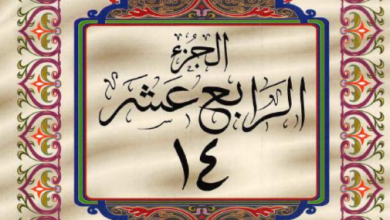 الجزء
الرابع عشر
١٤